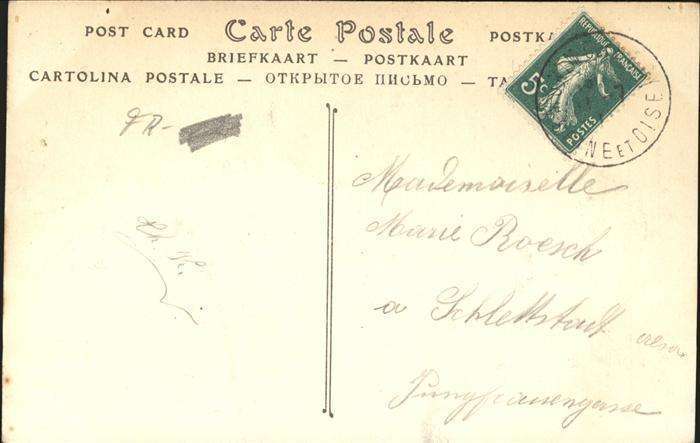 POST CARD Carte Postale
BRIEFKAART — POSTKAART
CARTOLINA POSTALE — ОТКРЫТОЕ ПИСЬМО —
RÉPUBLIQUE FRANÇAISE
5c
POSTES
NE ET OISE
Mademoiselle
Marie Roesch
a Schlettstadt
Jungfrauengasse